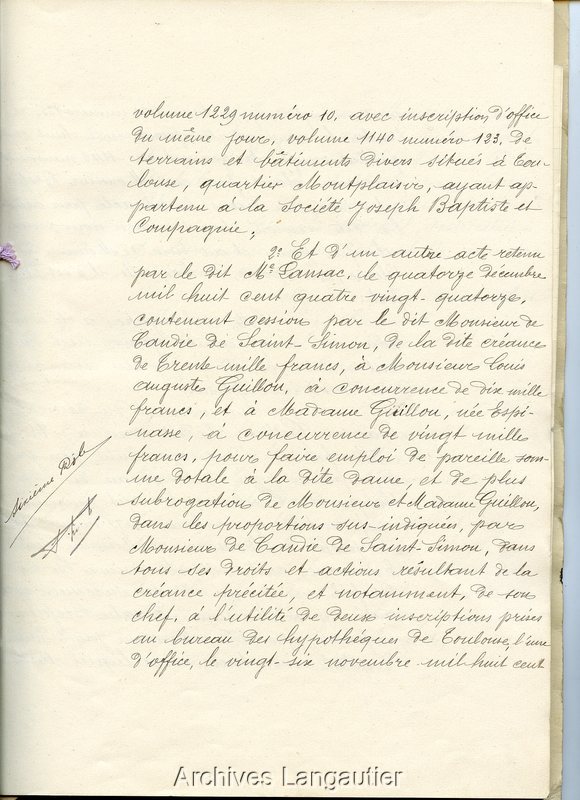 volume 1229 numéro 10. avec inscription d'office
du même jour, volume 1140 numéro 123, de
terrains et bâtiments divers situés à Tou-
louse, quartier Montplaisir, ayant ap-
partenu à la Société Joseph Baptiste et
Compagnie;
2º Et d'un autre acte retenu
par le dit Me Lansac, le quatorze décembre
mil huit cent quatre vingt-quatorze,
contenant cession par le dit Monsieur de
Candie de Saint-Simon, de la dite créance
de Trente mille francs, à Monsieur Louis
Auguste Guillon, à concurrence de dix mille
francs, et à Madame Guillon, née Espi-
nasse, à concurrence de vingt mille
francs, pour faire emploi de pareille som-
me dotale à la dite dame, et de plus
subrogation de Monsieur et Madame Guillon,
dans les proportions sus-indiquées, par
Monsieur de Candie de Saint-Simon, dans
tous ses droits et actions résultant de la
créance précitée, et notamment, de son
chef, à l'utilité de deux inscriptions prises
au bureau des hypothéques de Toulouse, l'une
d'office, le vingt-six novembre mil huit cent
sixième Rôle
Archives Langautier